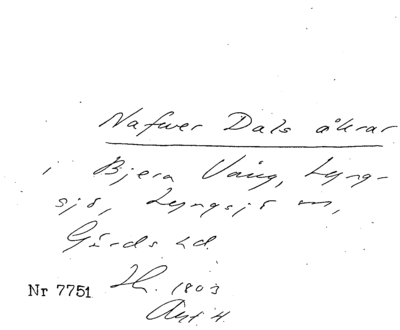 Nafwer Dals åkrar
i Bjera Vång, Lyng-
sjö, Lyngsjö sn,
Gärds hd
Nr 7751 LH. 1803
Akt 4.